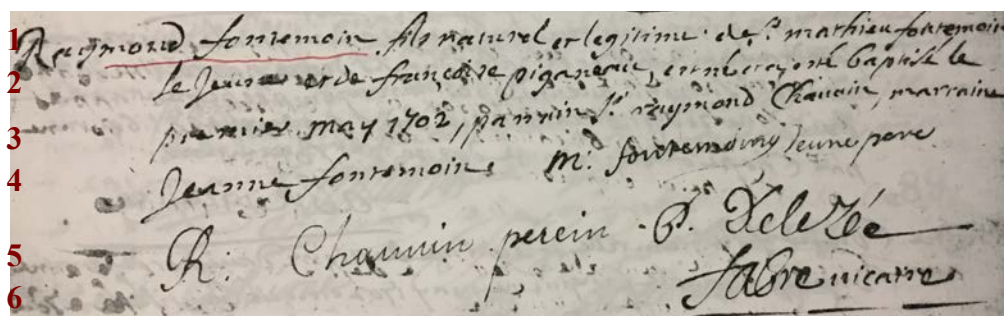 1 Raymond fontemoin fils naturel et legitime de Sr mathieu fontemoin
2 le Jeune et de françoise piganeau, est né et a esté baptisé le
3 premier may 1702, parrain Sr raymond Chauvin, marraine
4 Jeanne fontemoin m. fontemoing Jeune pere
5 R. Chauvin perein P.
6 fabre vicaire